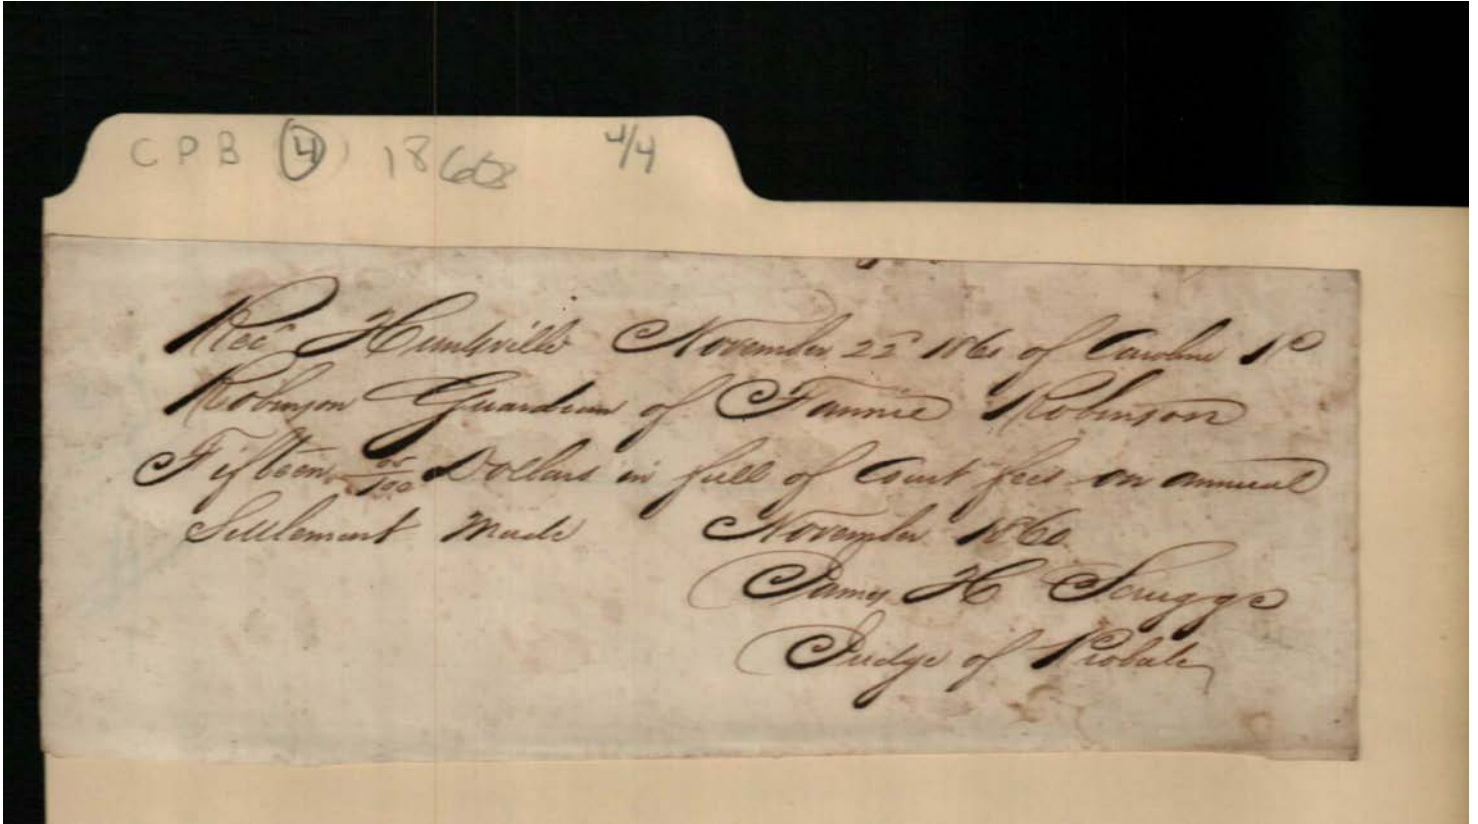 CPB (4) 1860 4/4
Rec'd Huntsville November 22d 1860 of Caroline P
Robinson Guardian of Fannie Robinson
Fifteen 05/100 Dollars in full of Court fees on annual
Settlement made November 1860
James H Scruggs
Judge of Probate